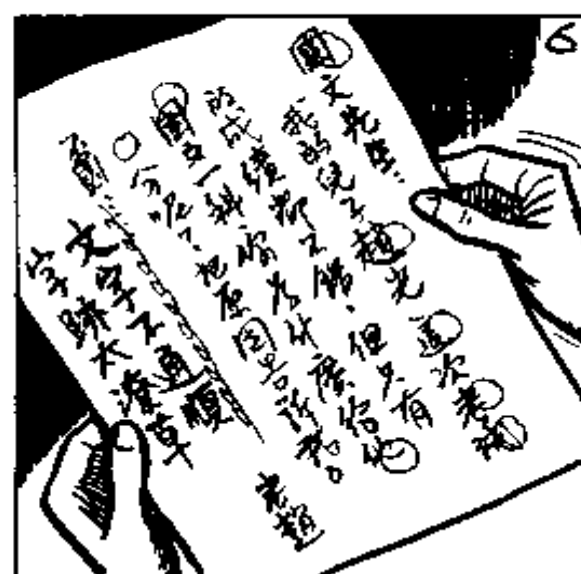 6
國文先生：
我的兒子趙光這次考試
的成績都不錯，但只有
國文一科你為什麼給他
〇分呢？把原因告訴我。
老趙
文字不通順
字跡太潦草